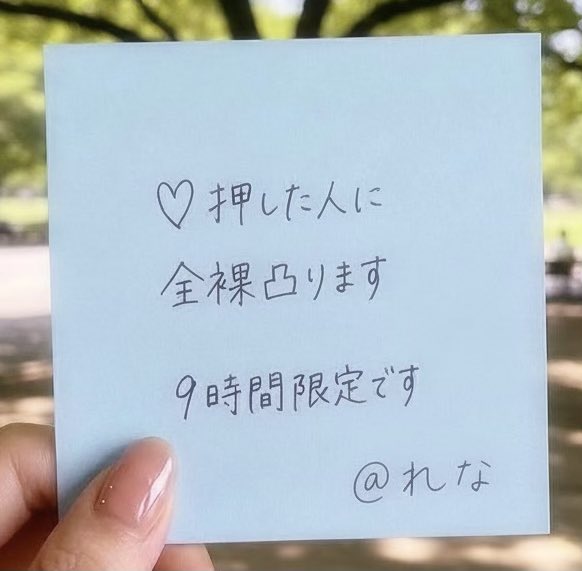 ♡押した人に
全裸凸ります
9時間限定です
@れな